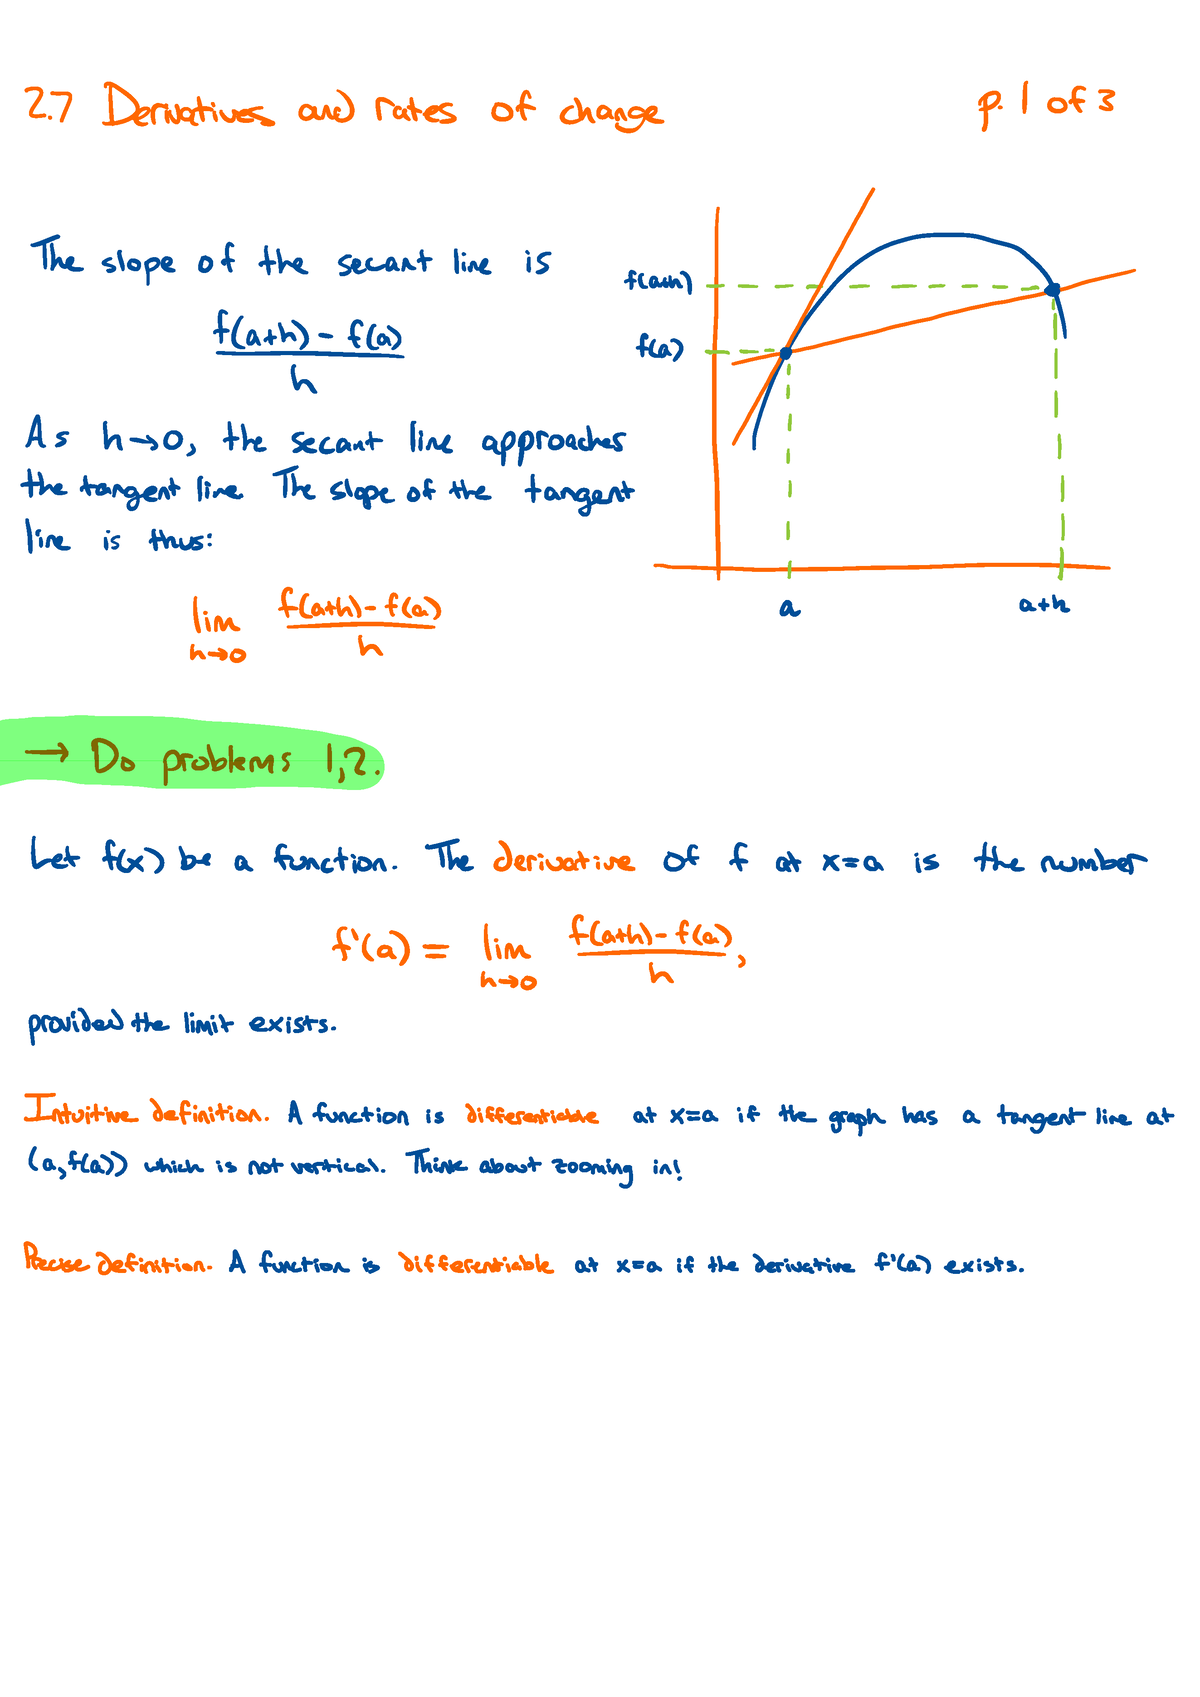 2.7 Derivatives and rates of change p. 1 of 3
The slope of the secant line is
f(a+h) - f(a)
h
As h→0, the secant line approaches
the tangent line. The slope of the tangent
line is thus:
lim f(a+h) - f(a)
h→0 h
f(a+h)
f(a)
a a+h
→ Do problems 1,2.
Let f(x) be a function. The derivative of f at x=a is the number
f'(a) = lim f(a+h) - f(a),
h→0 h
provided the limit exists.
Intuitive definition. A function is differentiable at x=a if the graph has a tangent line at
(a, f(a)) which is not vertical. Think about zooming in!
Precise definition. A function is differentiable at x=a if the derivative f'(a) exists.